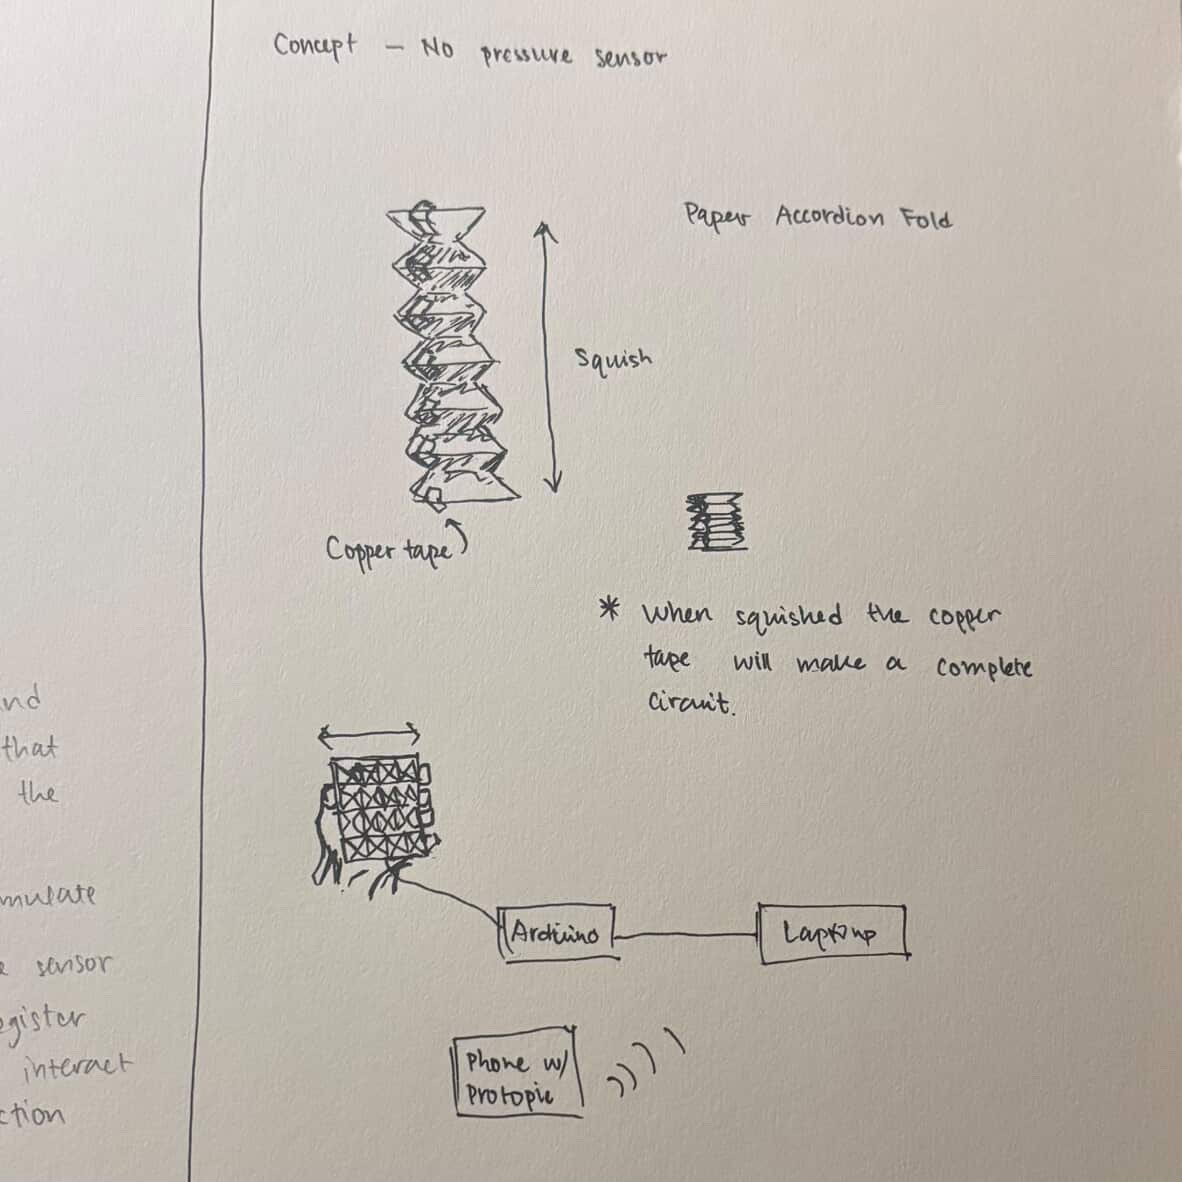 Concept - No pressure sensor
Paper Accordion Fold
Squish
Copper tape
* When squished the copper
tape will make a complete
circuit.
nd
that
the
mulate
e sensor
egister
interact
ction
Arduino
Phone w/
Protopie